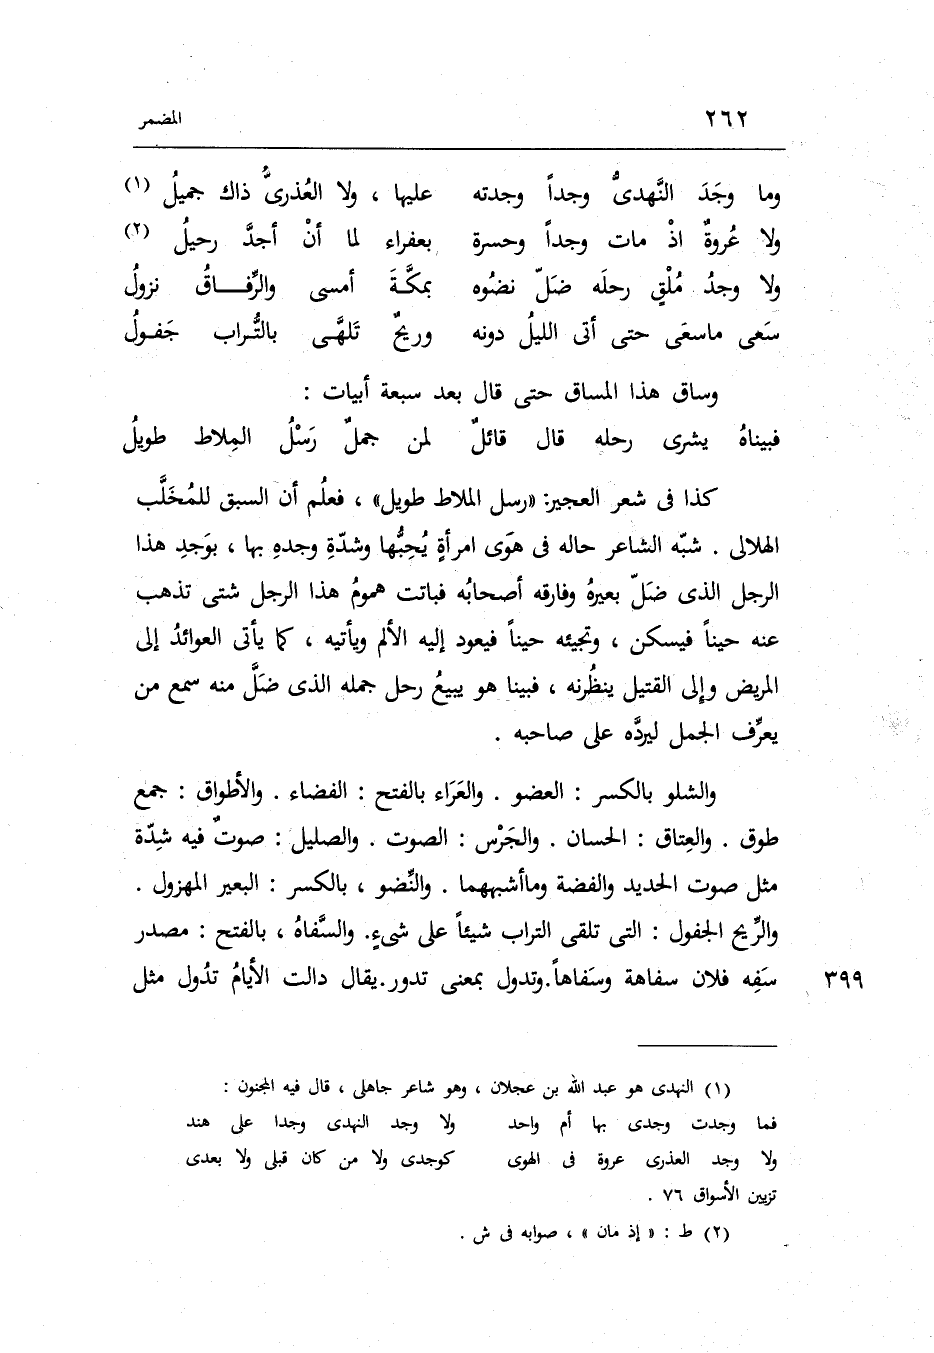 ٢٦٢ المضمر
وما وجَدَ النَّهدىُّ وجداً وجدته عليها ، ولا العُذرىُّ ذاك جميلُ (١)
ولا عُروةٌ اذْ مات وجداً وحسرة بعفراء لما أنْ أجدَّ رحيلُ (٢)
ولا وجدُ مُلْقٍ رحلَه ضَلّ نضُوه بمكَّةَ أمسى والرِّفـاقُ نزولُ
سَعى ماسعَى حتى أتى الليلُ دونه وريحٌ تَلهَّـى بالتُّـراب جَفـولُ
وساق هذا المساق حتى قال بعد سبعة أبيات :
فبيناهُ يشرى رحله قال قائلٌ لمن جملٌ رَسْلُ المِلاط طويلُ
كذا فى شعر العجير: «رسل الملاط طويل» ، فعلُم أن السبق للمُخَلَّب
الهلالى . شبّه الشاعر حاله فى هوَى امرأةٍ يُحِبُّها وشدّةِ وجدهِ بها ، بوَجدِ هذا
الرجل الذى ضَلّ بعيرهُ وفارقه أصحابُه فباتت همومُ هذا الرجل شتى تذهب
عنه حيناً فيسكن ، وتجيئه حيناً فيعود إليه الألم ويأتيه ، كما يأتى العوائدُ إلى
المريض وإلى القتيل ينظُرنه ، فبينا هو يبيعُ رحل جمله الذى ضَلَّ منه سمع من
يعرِّف الجمل ليردَّه على صاحبه .
والشلو بالكسر : العضو . والعَرَاء بالفتح : الفضاء . والأطواق : جمع
طوق . والعِتاق : الحسان . والجَرْس : الصوت . والصليل : صوتٌ فيه شِدّة
مثل صوت الحديد والفضة وماأشبههما . والنِّضو ، بالكسر : البعير المهزول .
والرِّيح الجفول : التى تلقى التراب شيئاً على شىءٍ. والسَّفاهُ ، بالفتح : مصدر
سَفِه فلان سفاهة وسَفاهاً.وتدول بمعنى تدور.يقال دالت الأيامُ تدُول مثل ٣٩٩
(١) النهدى هو عبد الله بن عجلان ، وهو شاعر جاهلى ، قال فيه المجنون :
فما وجدت وجدى بها أم واحد ولا وجد النهدى وجدا على هند
ولا وجد العذرى عروة فى الهوى كوجدى ولا من كان قبلى ولا بعدى
تزيين الأسواق ٧٦ .
(٢) ط : « إذ مان » ، صوابه فى ش .